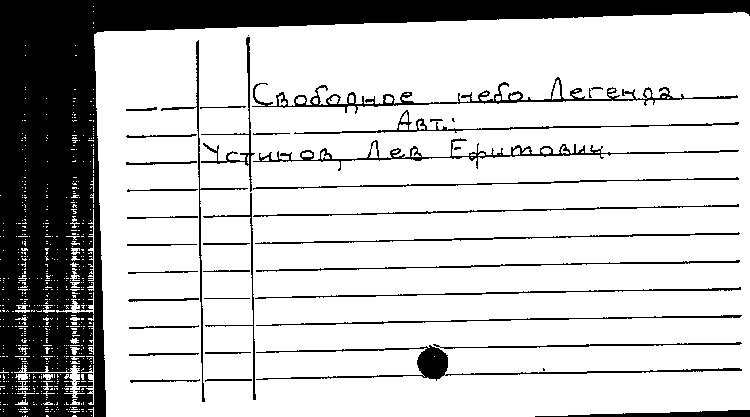 Свободное небо. Легенда.
Авт.:
Устинов, Лев Ефимович.